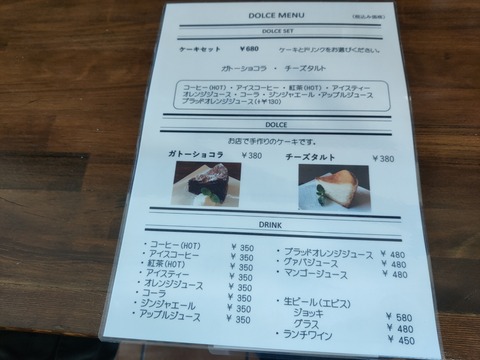 DOLCE MENU (税込み価格)
DOLCE SET
ケーキセット ¥680 ケーキとドリンクをお選びください。
ガトーショコラ ・ チーズタルト
コーヒー(HOT)・アイスコーヒー・紅茶(HOT)・アイスティー
オレンジジュース・コーラ・ジンジャエール・アップルジュース
ブラッドオレンジジュース(+¥130)
DOLCE
お店で手作りのケーキです。
ガトーショコラ ¥380 チーズタルト ¥380
DRINK
・コーヒー(HOT) ¥350
・アイスコーヒー ¥350
・紅茶(HOT) ¥350
・アイスティー ¥350
・オレンジジュース ¥350
・コーラ ¥350
・ジンジャエール ¥350
・アップルジュース ¥350
・ブラッドオレンジジュース ¥480
・グァバジュース ¥480
・マンゴージュース ¥480
・生ビール(エビス)
ジョッキ ¥580
グラス ¥480
・ランチワイン ¥450